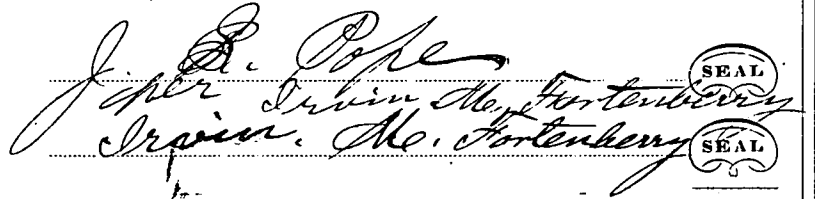 R. Pope
per Irvin M. Fortenberry SEAL
Irvin. M. Fortenberry SEAL